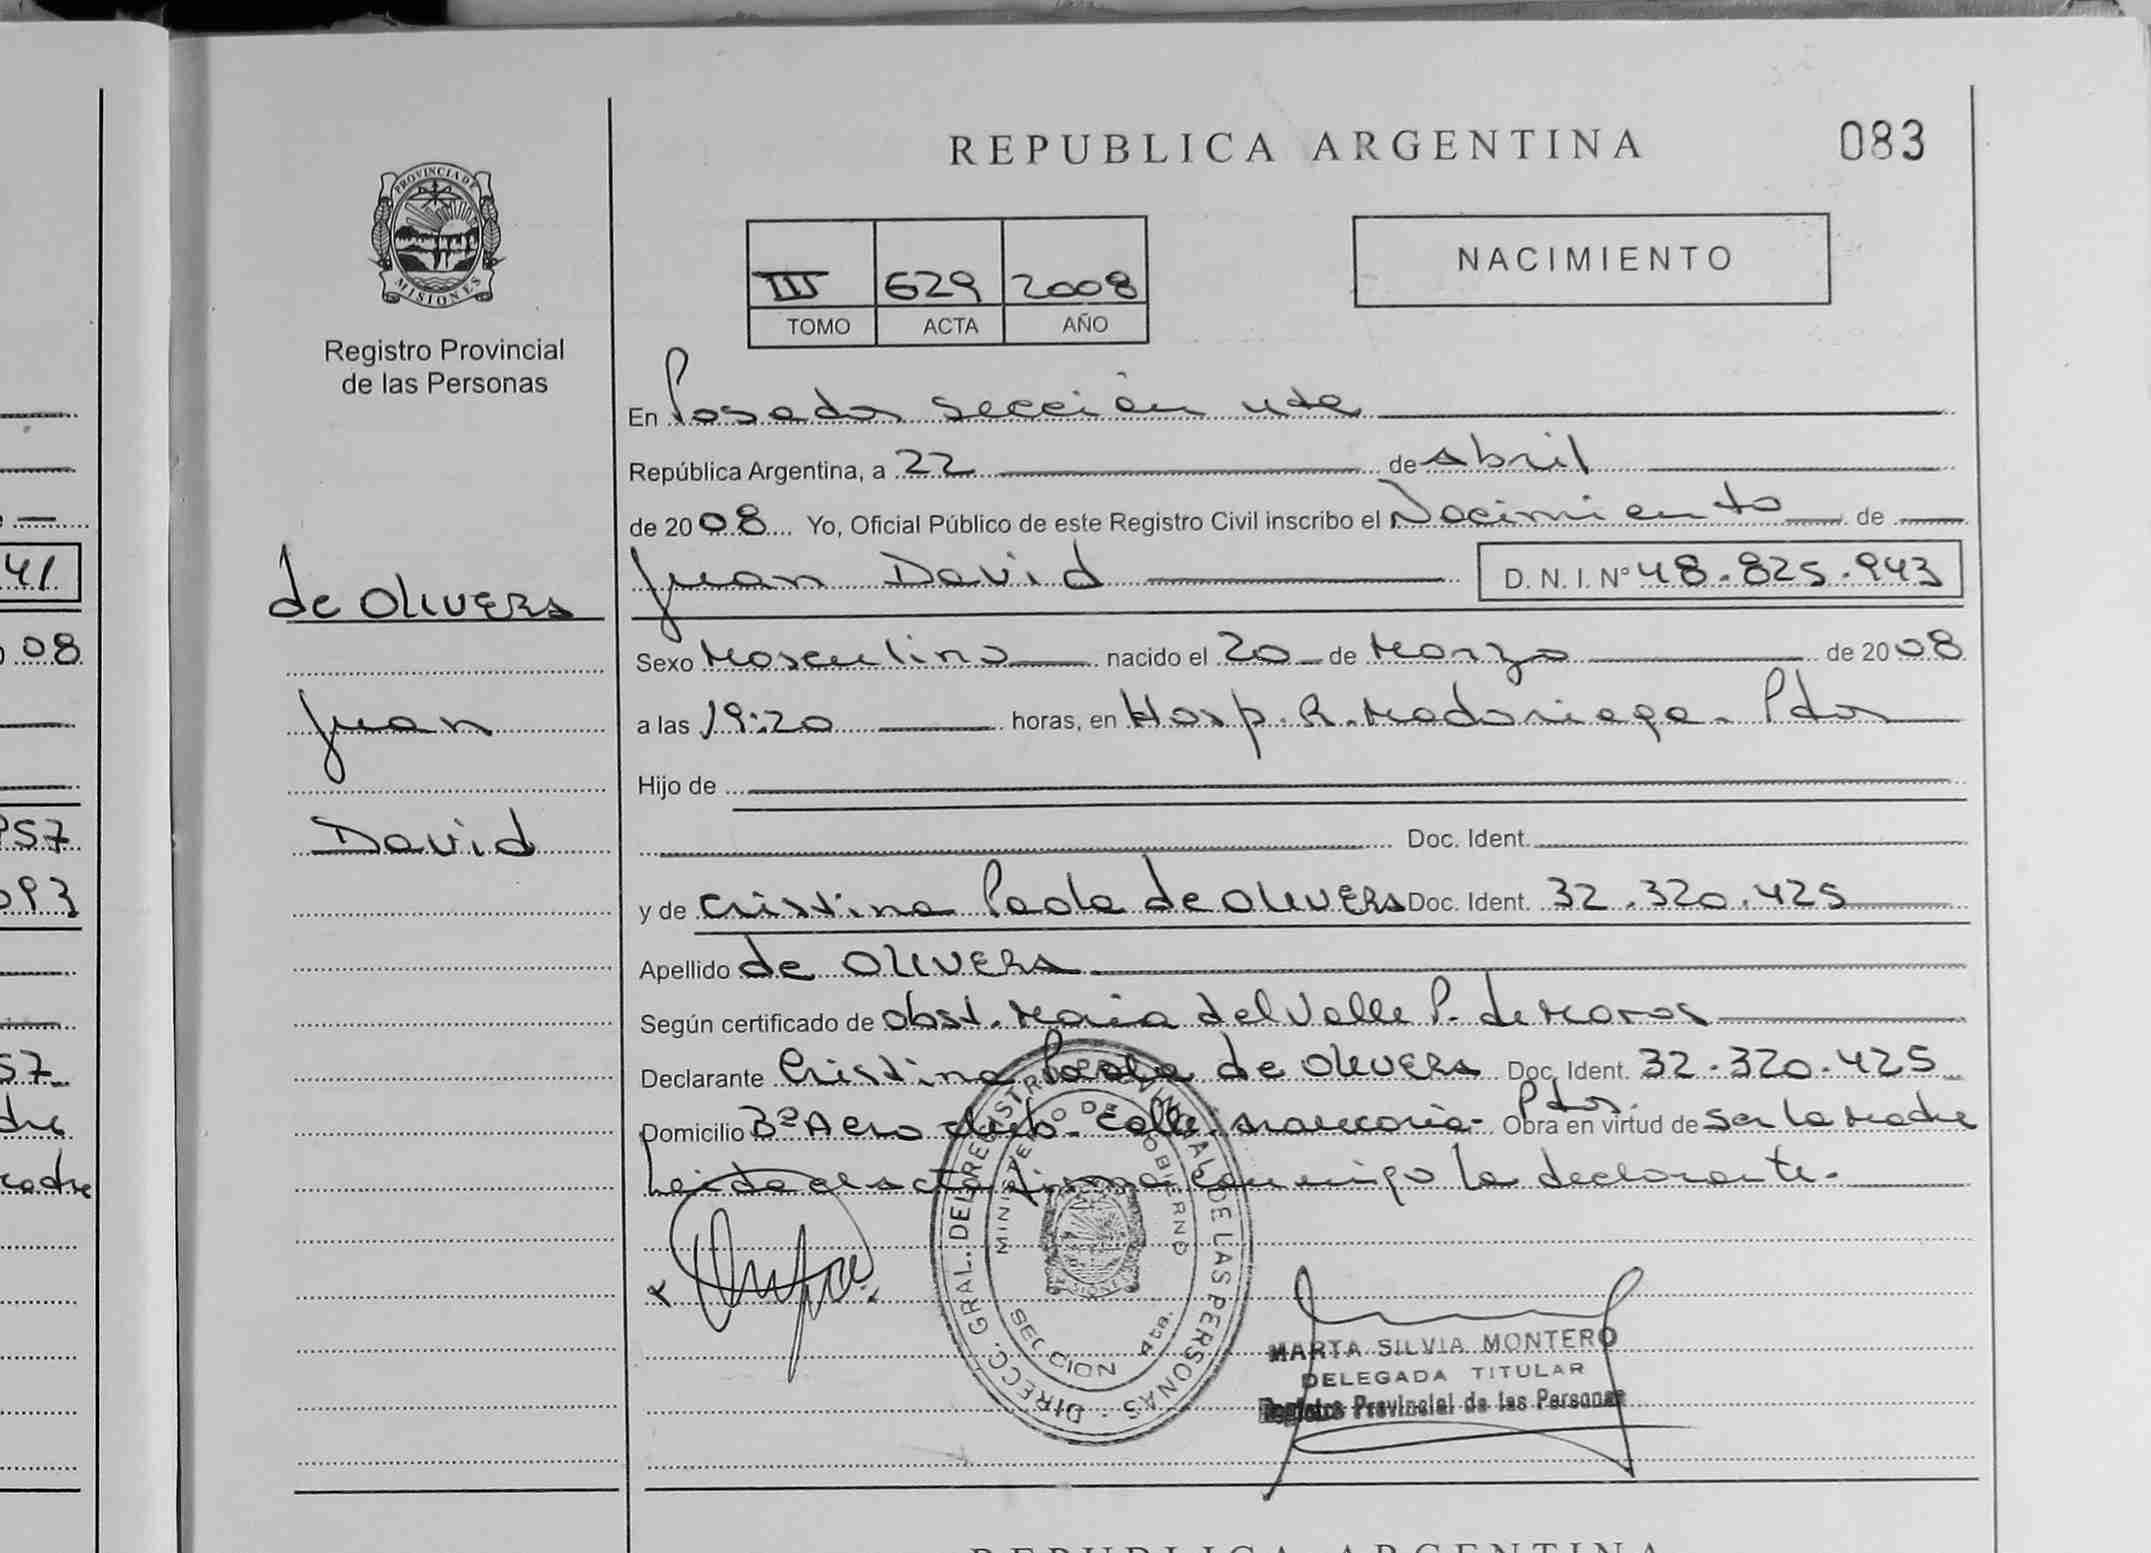 REPUBLICA ARGENTINA
083
PROVINCIA DE
MISIONES
Registro Provincial
de las Personas
III 629 2008
TOMO ACTA AÑO
NACIMIENTO
En Posadas sección 4ta
República Argentina, a 22 de abril
de 2008 Yo, Oficial Público de este Registro Civil inscribo el Nacimiento de
Juan David D. N. I. Nº 48.825.943
de OLIVERA
Juan
David
Sexo Masculino nacido el 20 de Marzo de 2008
a las 19:20 horas, en Hosp. R. Madariaga. Pdas
Hijo de
Doc. Ident.
y de Cristina Paola de OLIVERA Doc. Ident. 32.320.425
Apellido de OLIVERA
Según certificado de obst. María del Valle P. de
Declarante Cristina Paola de OLIVERA Doc. Ident. 32.320.425
Domicilio Bº Aero club. Calle Pdas. Obra en virtud de ser la madre
Leída el acta firma conmigo la declarante.
DIRECC. GRAL. DEL REGISTRO PROVINCIAL DE LAS PERSONAS
MINISTERIO DE GOBIERNO
SECCION 4ta.
MARTA SILVIA MONTERO
DELEGADA TITULAR
Registro Provincial de las Personas
41
08
957
093
57
dre
madre
REPUBLICA ARGENTINA